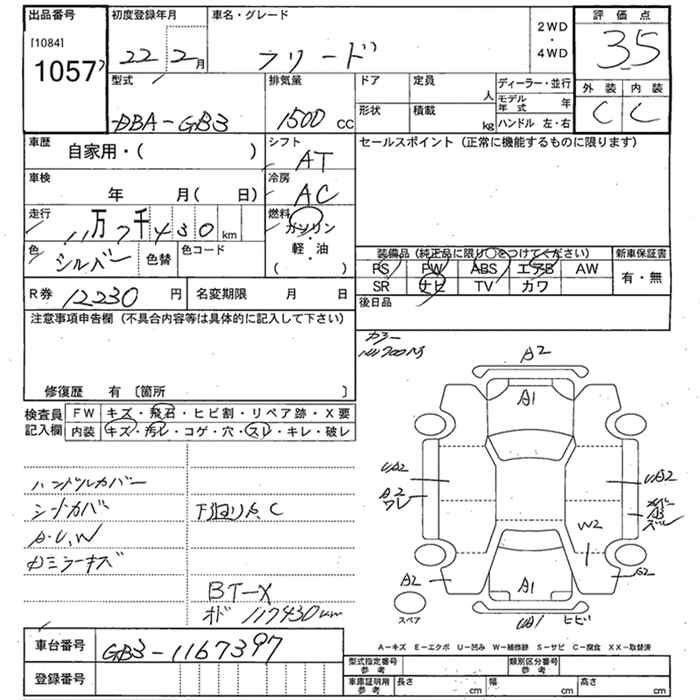 出品番号
[1084]
1057
初度登録年月
22 2 月
車名・グレード
フリード
2WD
・
4WD
評価点
3.5
外装 内装
C C
型式
DBA-GB3
排気量
1500 CC
ドア 定員 人
形状 積載 kg
ディーラー・並行
モデル年式 年
ハンドル 左・右
車歴 自家用・( )
シフト AT
セールスポイント (正常に機能するものに限ります)
車検 年 月( 日)
冷房 AC
走行 11万7千430 km
燃料 ガソリン
・
軽・油
( )
色 シルバー 色替 色コード
装備品 (純正品に限り○をつけてください) 新車保証書
PS PW ABS エアB AW
SR ナビ TV カワ
有・無
R券 12230 円 名変期限 月 日
後日品
注意事項申告欄 (不具合内容等は具体的に記入して下さい)
修復歴 有 〔箇所 〕
検査員記入欄
FW キズ・飛石・ヒビ割・リペア跡・X要
内装 キズ・汚レ・コゲ・穴・スレ・キレ・破レ
カラー
NH700M
ハンドルカバー
シートカバー
A.U.W
下廻りA.C
BT-X
オド 117430km
A2
A1
UA2
A2
ワレ
UA2
W2
A2
G2
A1
UA1 ヒビ
スペア
車台番号 GB3-1167397
登録番号
A-キズ E-エクボ U-凹み W-補修跡 S-サビ C-腐食 XX-取替済
型式指定番号 参考
類別区分番号 参考
車庫証明用 参考 長さ .cm 幅 .cm 高さ .cm